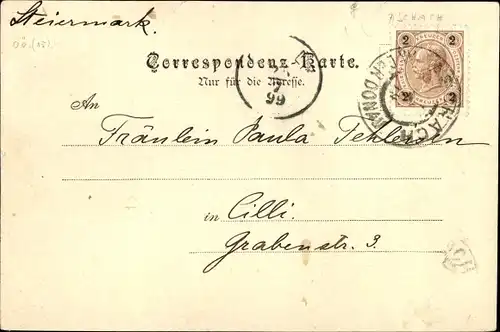 Steiermark.
ASCHACH
2 KREUZER 2
2 2
Correspondenz-Karte.
Nur für die Adresse.
99
ASCHACH
AN DER DONAU
An
Fräulein Paula
in Cilli.
Grabenstr. 3.